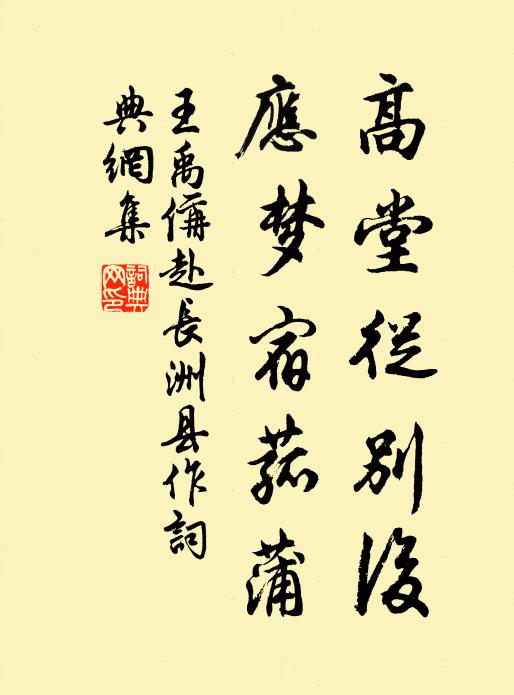 高堂從别後
應梦宿菰蒲
王禹偁赴長洲县作詞
典網集
詞典网印